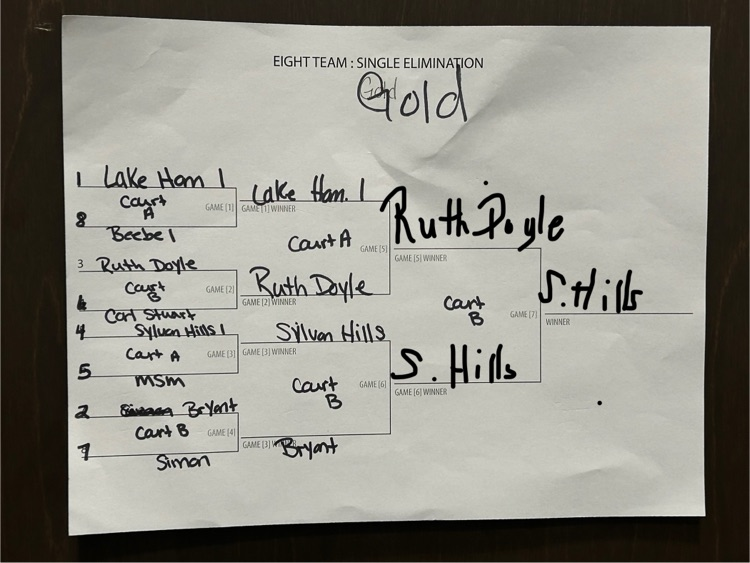 EIGHT TEAM : SINGLE ELIMINATION
Gold
Gold
1 Lake Ham 1
Court A
GAME [1]
8 Beebe 1
3 Ruth Doyle
Court B
GAME [2]
6 Carl Stuart
4 Sylvan Hills 1
Court A
GAME [3]
5 MSM
2 Bryant
Court B
GAME [4]
7 Simon
Lake Ham. 1
GAME [1] WINNER
Court A
GAME [5]
Ruth Doyle
GAME [2] WINNER
Sylvan Hills
GAME [3] WINNER
Court B
GAME [6]
Bryant
GAME [3] WINNER
Ruth Doyle
GAME [5] WINNER
Court B
GAME [7]
S. Hills
GAME [6] WINNER
S. Hills
WINNER